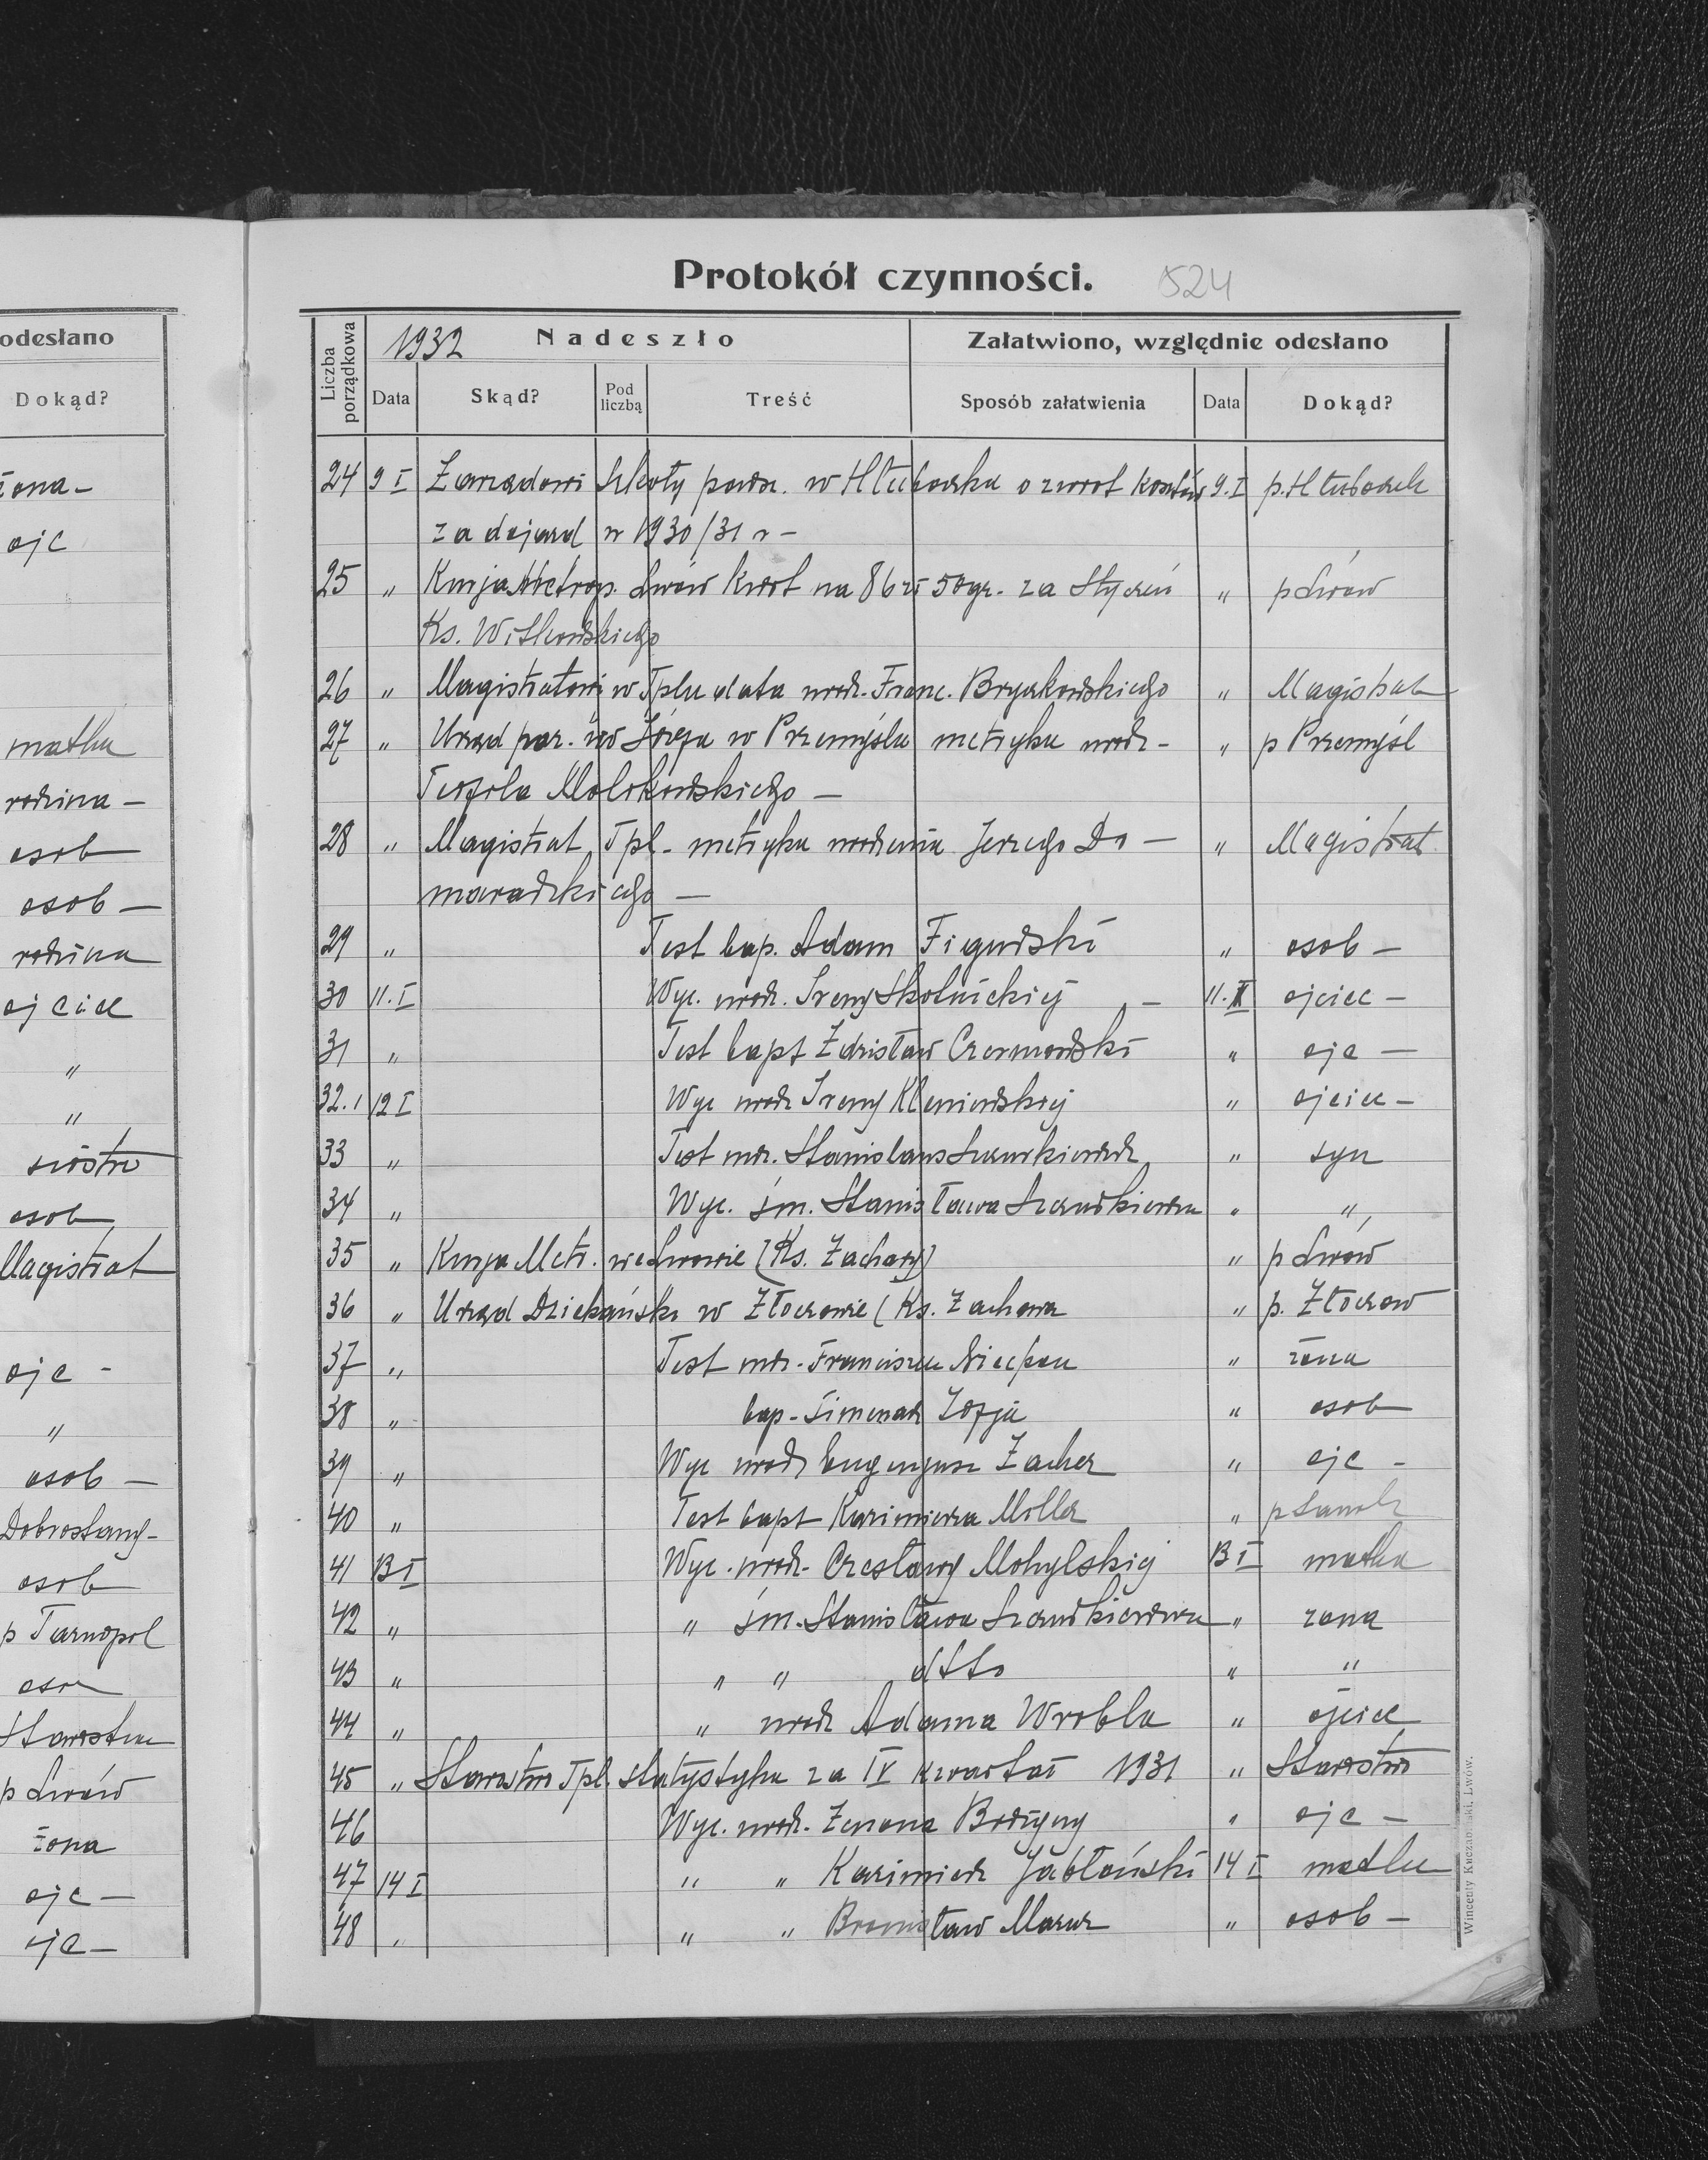 odesłano
Dokąd?
żona -
ojc
matka
rodzina -
osob
osob -
rodzina
ojciec
"
"
siostra
osob
Magistrat
ojc -
"
osob -
Dobrostany -
osob
p Tarnopol
Starostwo
p Lwów
żona
ojc -
ojc -
Protokół czynności. 524
Liczba porządkowa
1932 Nadeszło
Załatwiono, względnie odesłano
Data Skąd? Pod liczbą Treść Sposób załatwienia Data Dokąd?
24 9 I Zarządowi Szkoły powsz. w Hłuboczku o zwrot kosztów 9.I p. Hłuboczek
za dojazd w 1930/31 r -
25 " Kurja Metrop. Lwów kwot na 86 zł 50 gr. za Styczeń " p Lwów
Ks. Witkowskiego
26 " Magistratowi w Tplu data urodz. Franc. Bryczkowskiego " Magistrat
27 " Urząd par. św Józefa w Przemyślu metryka urodz - " p Przemyśl
Teofila Molikowskiego -
28 " Magistrat Tpl - metryka urodzenia Jerzego Do - " Magistrat
maradzkiego -
29 " Test bap. Adam Figurski " osob -
30 11.I Wyc. urodz. Ireny Skolnickiej - 11.I ojciec -
31 " Test bapt Zdzisław Czermowski " ojc -
32.1 12 I Wyc urodz Ireny Kleniowskiej " ojciec -
33 " Test urodz. Stanislaus " syn
34 " Wyc. śm. Stanisława " "
35 " Kurja Metr. we Lwowie (Ks. Zachary) " p Lwów
36 " Urząd Dziekański w Złoczowie (Ks. " p. Złoczow
37 " Test urodz - " żona
38 " bap - Zofja " osob
39 " Wyc urodz Eugenjusz Zacher " ojc -
40 " Test bapt Kazimierza Miller " p
41 13 I Wyc. urodz - Czesławy Mohylskiej 13 I matka
42 " " śm. Stanisława " zona
43 " " " dtto " "
44 " " urodz Adama Wrobla " ojciec
45 " Starostwo Tpl. statystyka za IV kwartał 1931 " Starostwo
46 Wyc. urodz. Zenona " ojc -
47 14 I " " Kazimierz Jabłoński 14 I matka
48 " " " Bronisław Mazur " osob -
Wincenty Kuczabiński, Lwów.